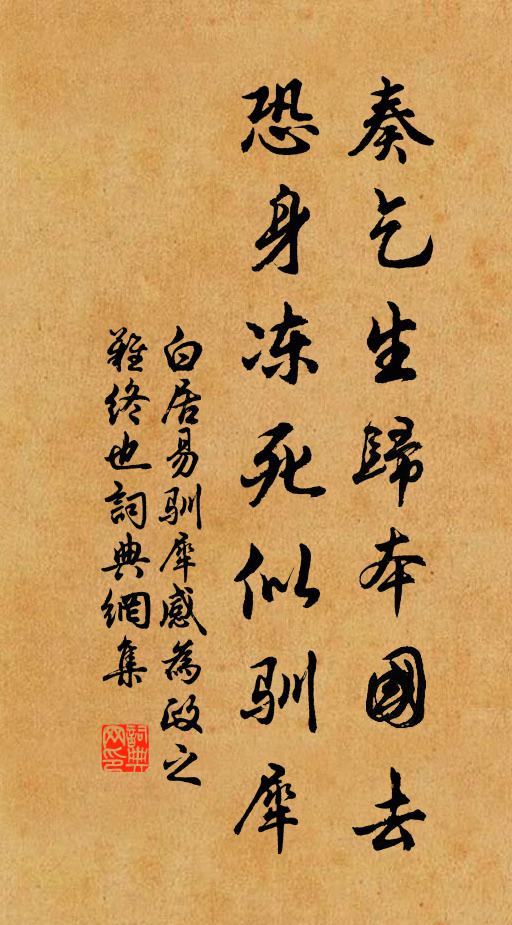 奏乞生歸本國去
恐身冻死似驯犀
白居易驯犀感為政之
難終也詞典網集
詞典網印